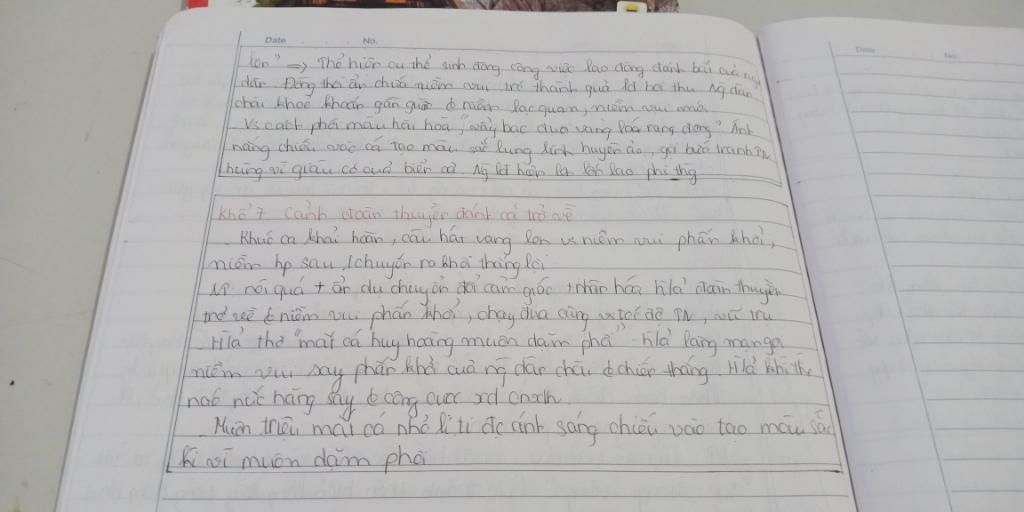 Date No.
lên" => Thể hiện cụ thể sinh động công việc lao động đánh bắt của ng
dân. Đồng thời ẩn chứa niềm vui trc thành quả lđ bội thu. Ng dân
chài khoẻ khoắn gần gũi & niềm lạc quan, niềm vui mới.
Vs cách phối màu hài hoà, "vẩy bạc đuôi vàng loé rạng đông" Ánh
nắng chiếu vào cá tạo màu sắc lung linh huyền ảo, gợi bức tranh TN
hùng vĩ giàu có của biển cả. Ng lđ hiện lên lớn lao phi thg
Khổ 7 Cảnh đoàn thuyền đánh cá trở về
Khúc ca khải hoàn, câu hát vang lên vs niềm vui phấn khởi,
niềm hp sau 1 chuyến ra khơi thắng lợi
NT nói quá + ẩn dụ chuyển đổi cảm giác + nhân hóa h/ả đoàn thuyền
trở về & niềm vui phấn khởi, chạy đua cùng vs tốc độ TN, vũ trụ
H/ả thơ "mắt cá huy hoàng muôn dặm phơi" - h/ả lãng mạn
niềm vui say phấn khởi của ng dân chài & chiến thắng. H/ả khí thế
nức hăng say & công cuộc xd cnxh.
Muôn triệu mắt cá nhỏ li ti đc ánh sáng chiếu vào tạo màu sắc
kì vĩ muôn dặm phơi
Date No.